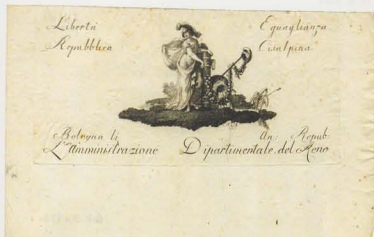 Libertà Eguaglianza
Repubblica Cisalpina
Bologna li An: Repub
L'amministrazione Dipartimentale del Reno